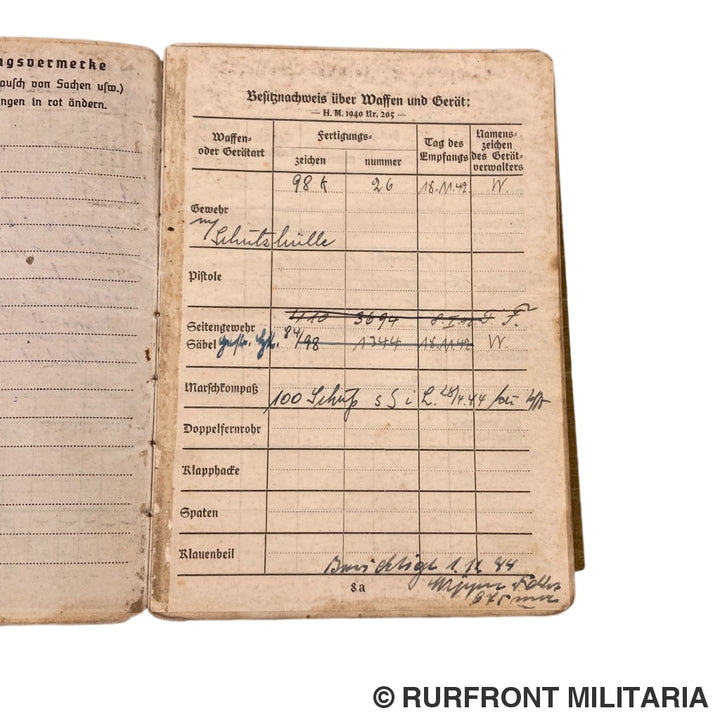 ngsvermerke
ausch von Sachen usw.)
ngen in rot ändern.
Besitznachweis über Waffen und Gerät:
— H. M. 1940 Nr. 205 —
Waffen- oder Gerätart
Fertigungs-
zeichen
nummer
Tag des Empfangs
Namens- zeichen des Gerät- verwalters
98 k 26 18.11.42 W.
Gewehr
m/ Schutzhülle
Pistole
410 3694 F.
Seitengewehr
Säbel 84/98 1344 18.11.42 W.
Marschkompaß
100 Schuß s S i L. 28/4.44
Doppelfernrohr
Klapphacke
Spaten
Klauenbeil
Berichtigt 1.11.44
8a
© RURFRONT MILITARIA